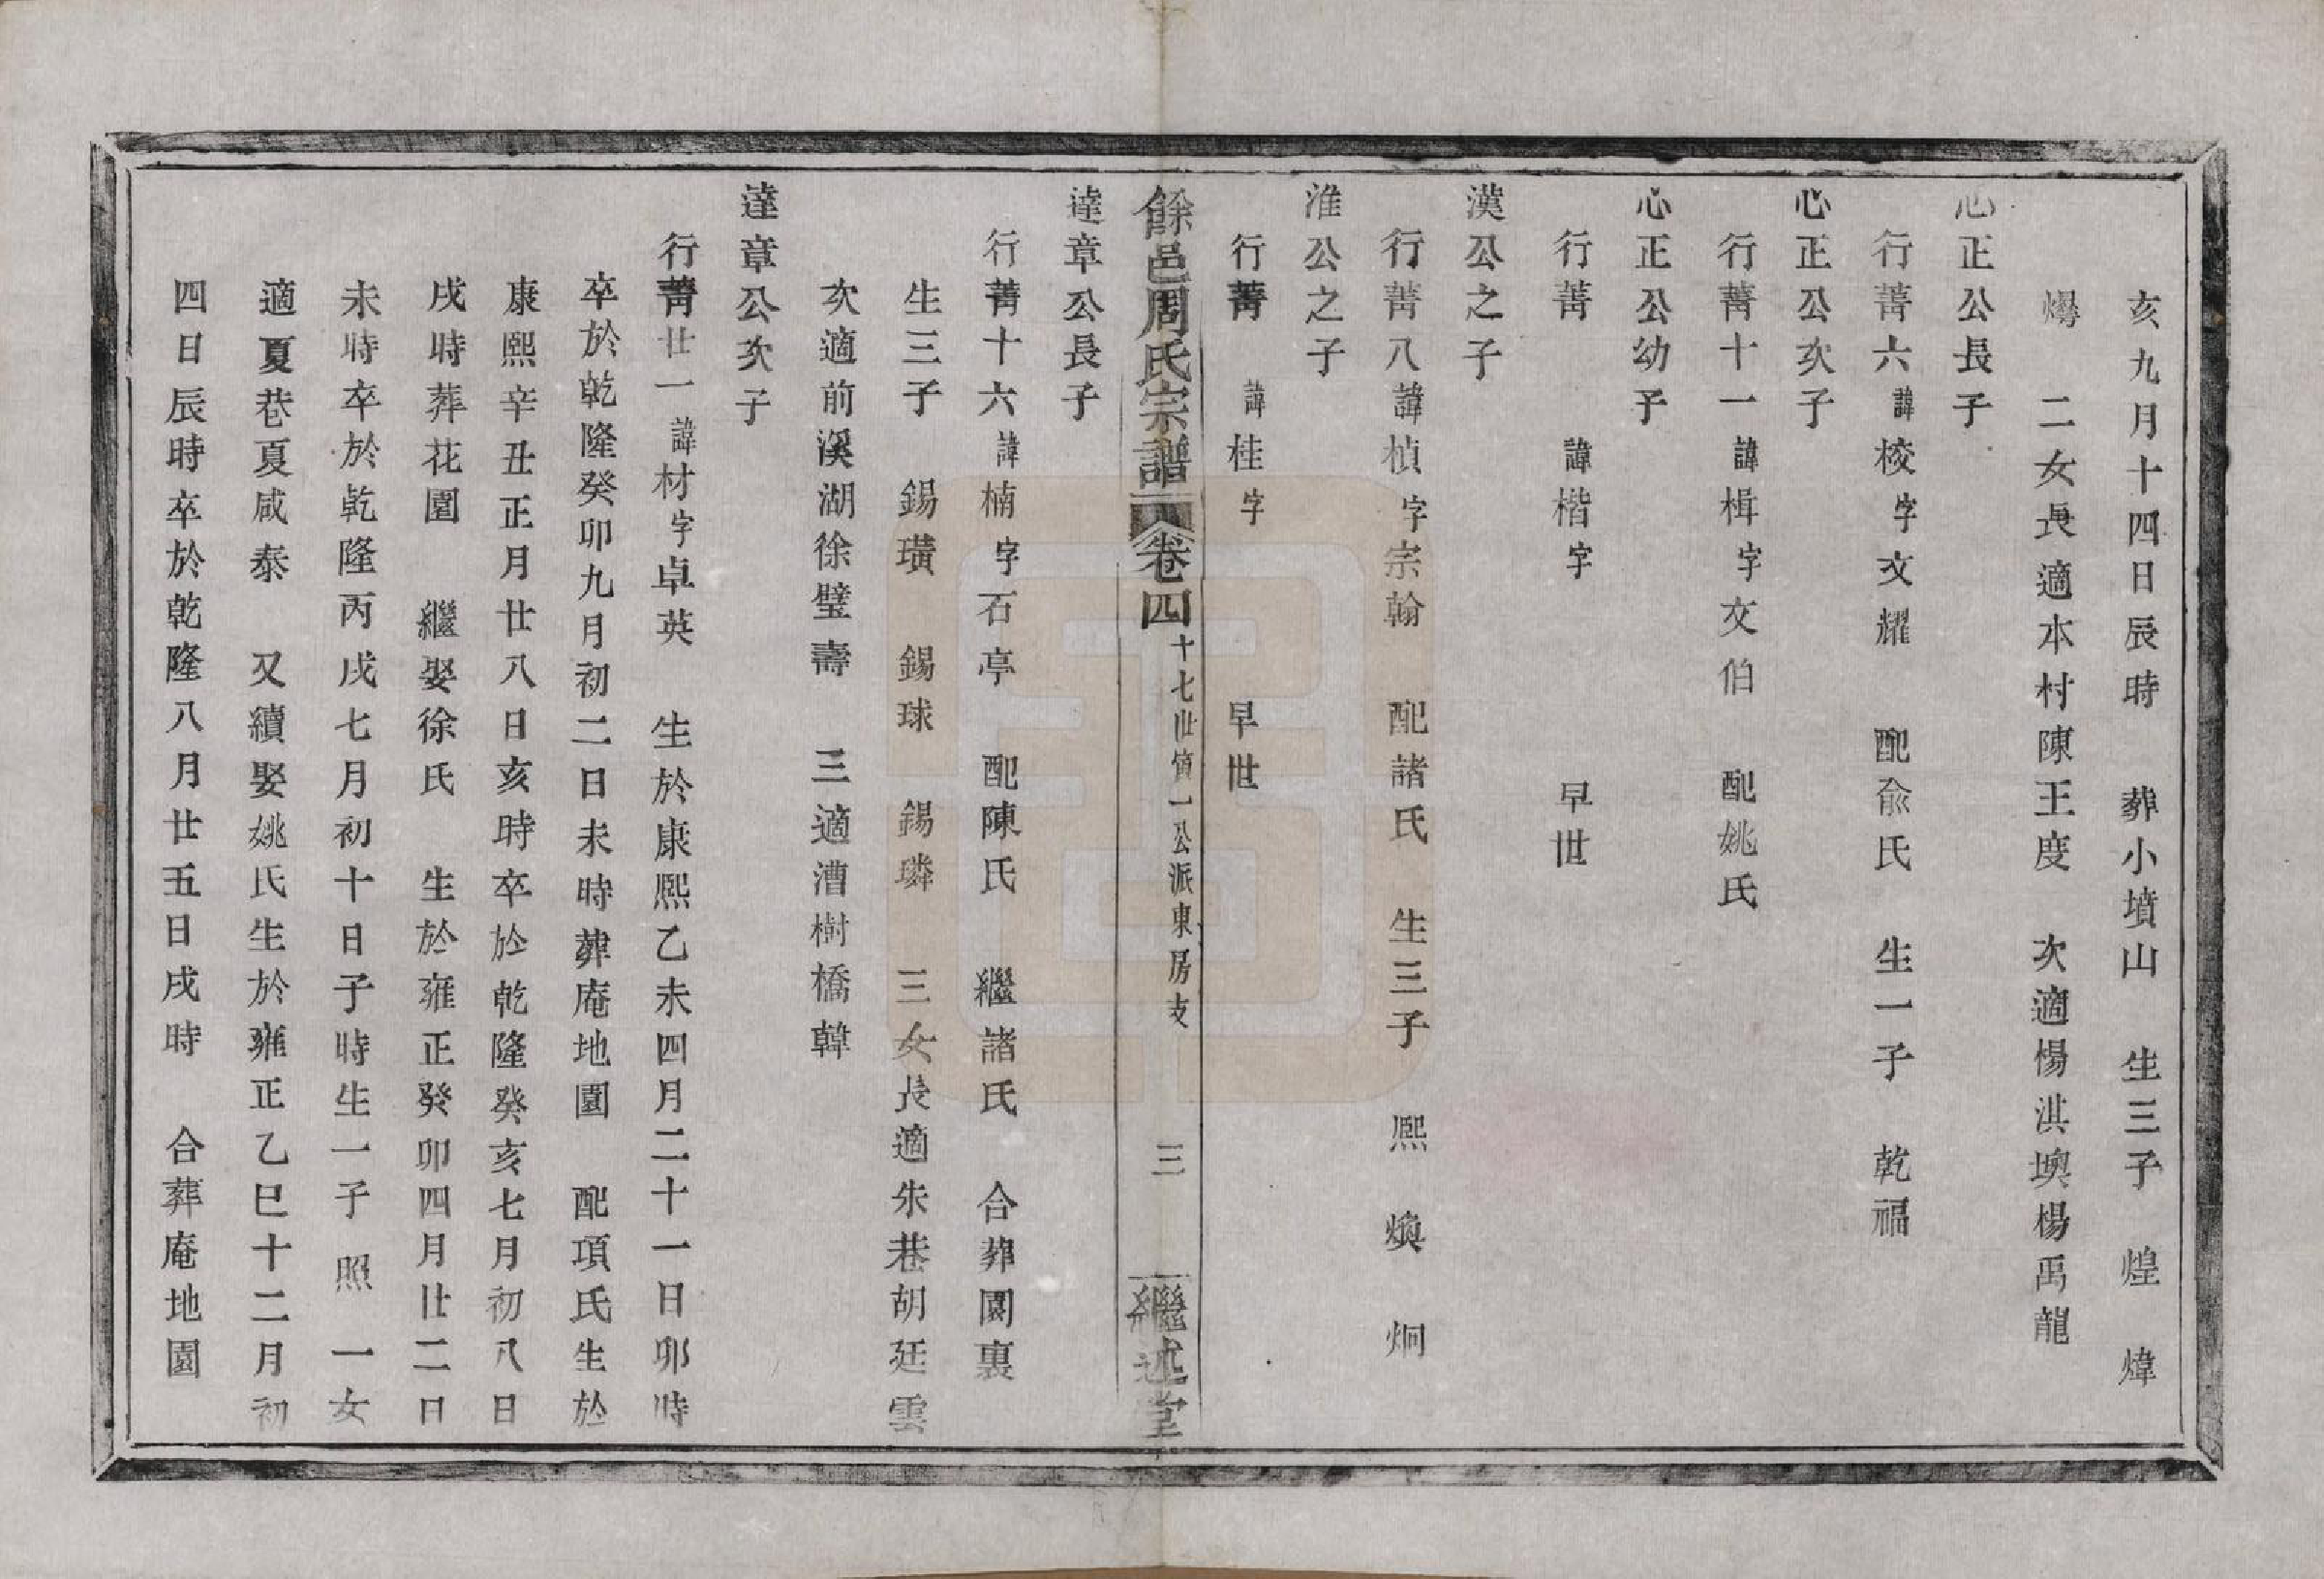 亥九月十四日辰時　葬小墳山　生三子　煌　煒
爆　二女長適本村陳王度　次適楊洪墺楊禹龍
心正公長子
行菁六諱棱字文耀　配俞氏　生一子　乾福
心正公次子
行菁十一諱楫字文伯　配姚氏
心正公幼子
行菁　諱楷字　早世
漢公之子
行菁八諱楨字宗翰　配諸氏　生三子　熙　煥　炯
淮公之子
行菁　諱桂字　早世
餘邑周氏宗譜　卷四　十七世質一公派東房支　三　繼述堂
達章公長子
行菁十六諱楠字石亭　配陳氏　繼諸氏　合葬園裏
生三子　錫璜　錫球　錫璘　三女長適朱巷胡廷雲
次適前溪湖徐璧壽　三適漕樹橋韓
達章公次子
行菁廿一諱材字卓英　生於康熙乙未四月二十一日卯時
卒於乾隆癸卯九月初二日未時葬庵地園　配項氏生於
康熙辛丑正月廿八日亥時卒於乾隆癸亥七月初八日
戌時葬花園　繼娶徐氏　生於雍正癸卯四月廿二日
未時卒於乾隆丙戌七月初十日子時生一子　照　一女
適夏巷夏咸泰　又續娶姚氏生於雍正乙巳十二月初
四日辰時卒於乾隆八月廿五日戌時　合葬庵地園